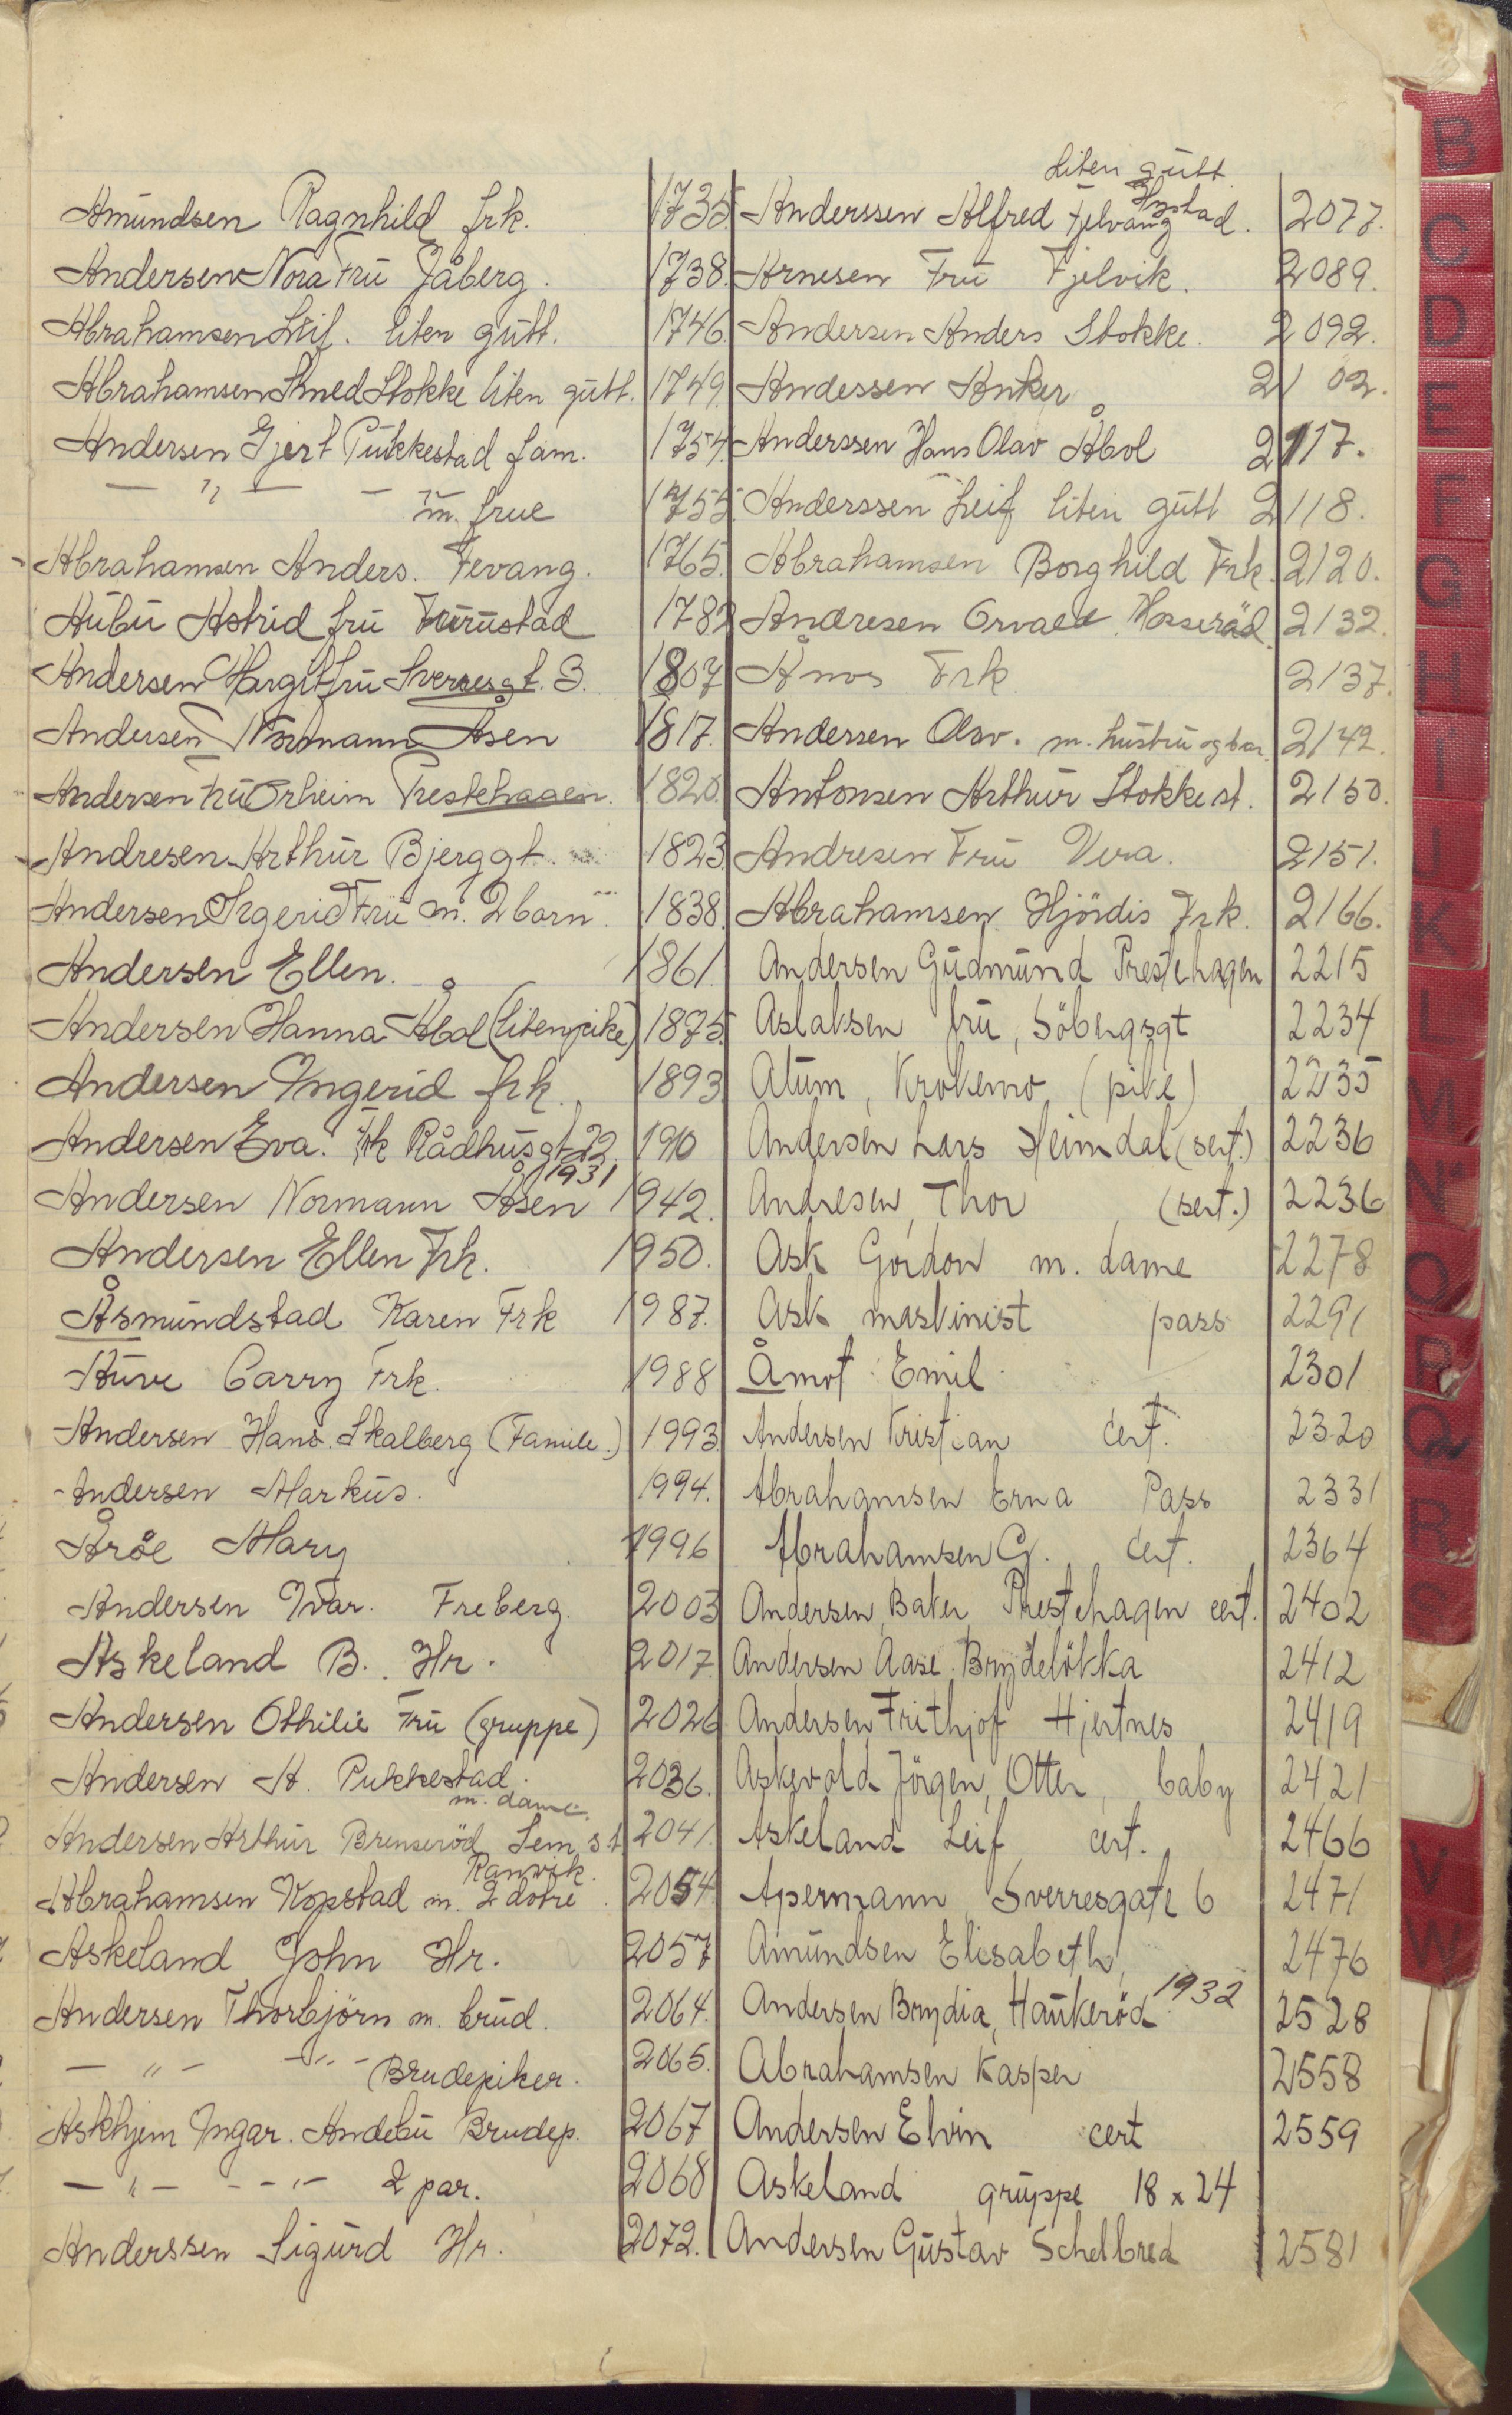 Amundsen Ragnhild frk. 1735.
Andersen Nora Fru Jåberg. 1738.
Abrahamsen Leif. liten gutt. 1746.
Abrahamsen Stokke liten gutt. 1749.
Andersen Gjert Pukkestad fam. 1754.
— " — — " — m. frue 1755.
Abrahamsen Anders. Fevang. 1765.
Aubu Astrid fru Furustad 1782
Andersen Margit fru Sverresgt. 3. 1807
Andersen Normann Åsen 1817.
Andersen fru Orheim Prestehagen. 1820.
Andresen Arthur Bjerggt. 1823
Andersen Fru m. 2 barn. 1838.
Andersen Ellen. 1861
Andersen Hanna Åbol (liten pike) 1875.
Andersen Yngerid frk. 1893
Andersen Eva. Frk Rådhusgt 22 1910
1931
Andersen Normann Åsen 1942.
Andersen Ellen Frk. 1950.
Åsmundstad Karen Frk 1987.
Auve Carry Frk. 1988
Andersen Hans. Skalberg (Famile.) 1993.
Andersen Markus. 1994.
Årøe Mary 1996
Andersen Ivar. Freberg. 2003
Askeland B. Hr. 2017.
Andersen Othilie Fru (gruppe) 2026
Andersen A. Pukkestad. 2036.
m. dame.
Andersen Arthur Brenserød Sem st 2041.
Ranvik.
Abrahamsen Kopstad m. 2 døtre. 2054.
Askeland John Hr. 2057
Andersen Thorbjörn m. brud. 2064.
— " — — " — Brudepiker. 2065.
Askhjem Yngar. Andebu Brudep. 2067
— " — — " — 2 par. 2068
Anderssen Sigurd Hr. 2072.
Liten gutt
Hystad
Anderssen Alfred Fjelvang. 2077.
Arnesen Fru Fjelvik. 2089.
Andersen Anders Stokke. 2092.
Andessen Anker 2102.
Anderssen Hans Olav Åbol 2117.
Anderssen Leif liten gutt 2118.
Abrahamsen Borghild Frk. 2120.
Andresen Orvald Hasseråd. 2132.
Åmos Frk 2137.
Andersen Olav. m. hustru og bar. 2142.
Antonsen Arthur Stokke st. 2150.
Andresen Fru Vera. 2151.
Abrahamsen Hjördis Frk. 2166.
Andersen Gudmund Prestehagen 2215
Aslaksen fru, Söbergsgt 2234
Atum, Krokemo, (pike) 2235
Andersen Lars Heimdal (sert.) 2236
Andresen, Thor (sert.) 2236
Ask Gordon m. dame 2278
Ask maskinist pass 2291
Åmot Emil 2301
Andersen Kristian Cert. 2320
Abrahamsen Erna Pass 2331
Abrahamsen G. Cert. 2364
Andersen, Baker, Prestehagen cert. 2402
Andersen Aase Brydelökka 2412
Andersen Frithjof Hjertnes 2419
Askevold Jörgen, Otter, baby 2421
Askeland Leif cert. 2466
Apermann Sverresgate 6 2471
Amundsen Elisabeth, 2476
1932
Andersen Brydia, Haukeröd 2528
Abrahamsen Kasper 2558
Andersen Elvin cert 2559
Askeland gruppe 18 x 24
Andersen Gustav Schelbred 2581
B
C
D
E
F
G
H
I
J
K
L
M
N
O
P
Q
R
S
V
W